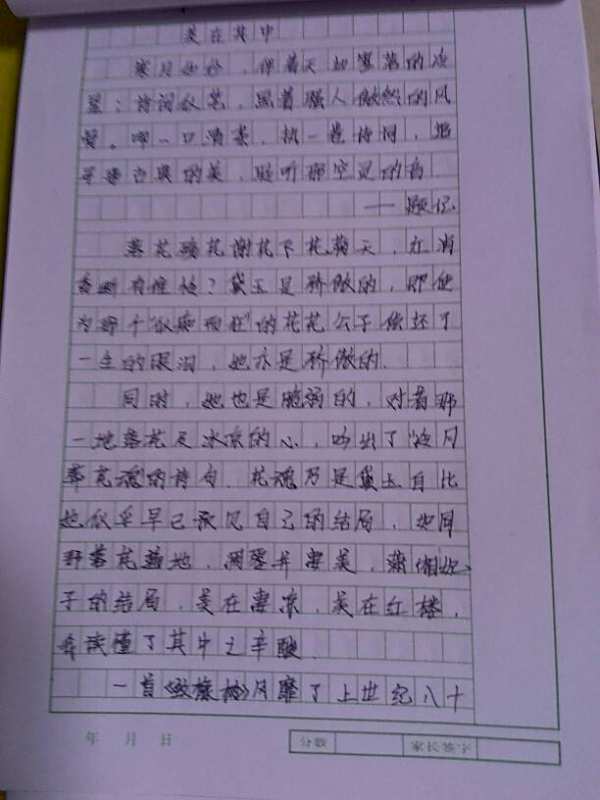 美在其中
寒月如纱，伴着天边寥落的冷
星；诗词似茗，黑着强人傲然的风
髮。呷一口清茶，执一卷诗词，追
寻着古典的美，聆听那空灵的音
——题记
落花 花谢花飞花满天，红消
香断有谁怜？黛玉是骄傲的，即使
为那个“似痴 狂”的花花公子偿还了
一生的眼泪，她亦是骄傲的.
同时，她也是脆弱的，对着那
一地落花及冰凉的心，吟出了冷月
葬花魂的诗句.花魂乃是黛玉自比
她似乎早已预见自己的结局，如同
那落花 地，凋零并凄美，潇湘妃
子的结局，美在凄凉，美在红楼，
我读懂了其中之辛酸.
一首《致橡树》风靡了上世纪八十
年 月 日 分数 家长签字